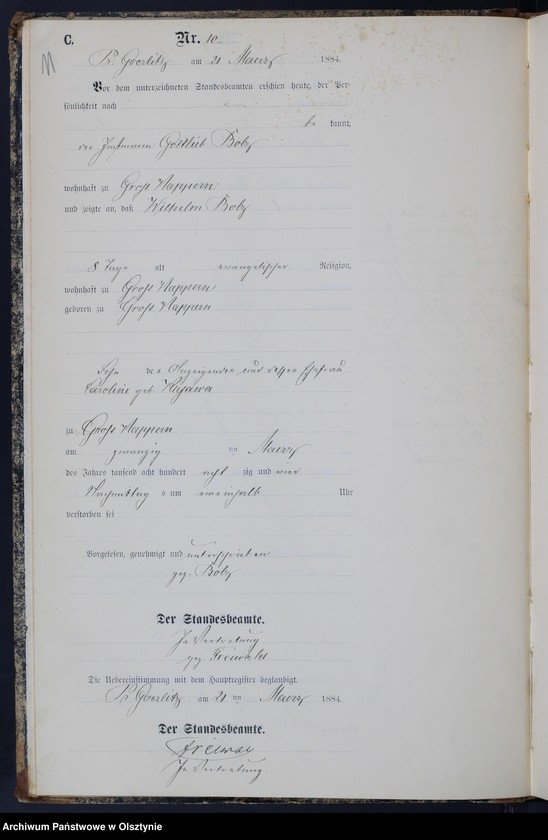 C. Nr. 10.
11
Pr. Goerlitz am 21 Maerz 1884.
Vor dem unterzeichneten Standesbeamten erschien heute, der Per-
sönlichkeit nach
be kannt,
der Instmann Gottlieb Bolz
wohnhaft zu Groß Nappern
und zeigte an, daß Wilhelm Bolz
8 Tage alt evangelischer Religion,
wohnhaft zu Groß Nappern
geboren zu Groß Nappern
Sohn des Anzeigenden und dessen Ehefrau
Caroline geb. Kujawa
zu Groß Nappern
am zwanzig ten Maerz
des Jahres tausend acht hundert acht zig und vier
Nachmittag s um eineinhalb Uhr
verstorben sei
Vorgelesen, genehmigt und unterschrieben
gez. Bolz
Der Standesbeamte.
In Vertretung
gez. Freiwald
Die Uebereinstimmung mit dem Hauptregister beglaubigt.
Pr. Goerlitz am 21 ten Maerz 1884.
Der Standesbeamte.
In Vertretung.
Archiwum Państwowe w Olsztynie